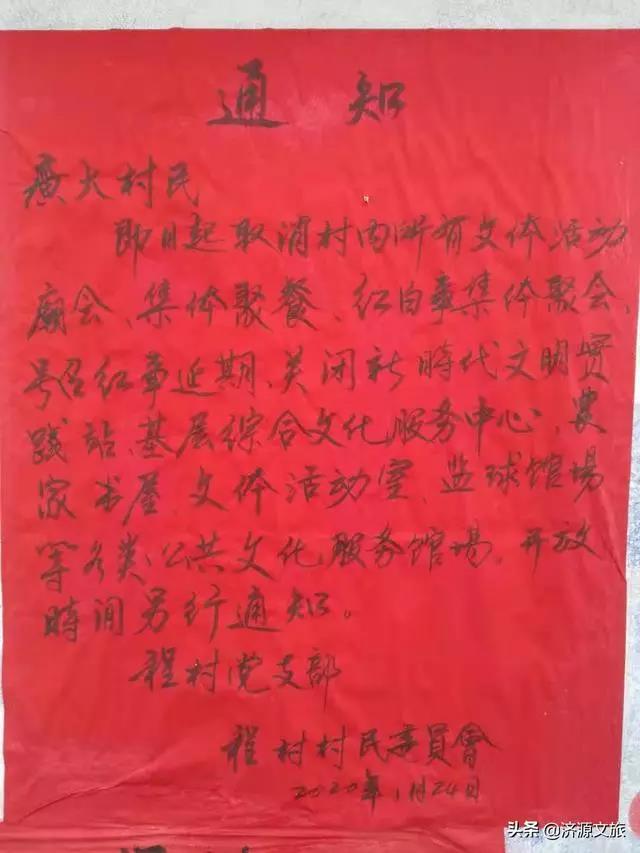 通知
廣大村民
即日起取消村内所有文体活动
廟会、集体聚餐、红白事集体聚会、
号召红事延期、关闭新時代文明实
践站、基层综合文化服务中心、農
家书屋、文体活动室、篮球馆场
等各类公共文化服务馆场。开放
時间另行通知。
程村党支部
程村村民委員會
2020年1月24日
头条@济源文旅